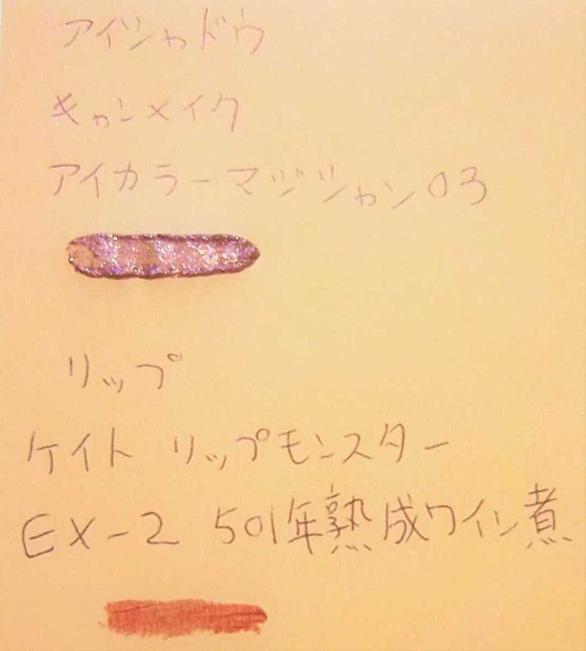 アイシャドウ
キャンメイク
アイカラーマジシャン03
リップ
ケイト リップモンスター
EX-2 501年熟成ワイン煮